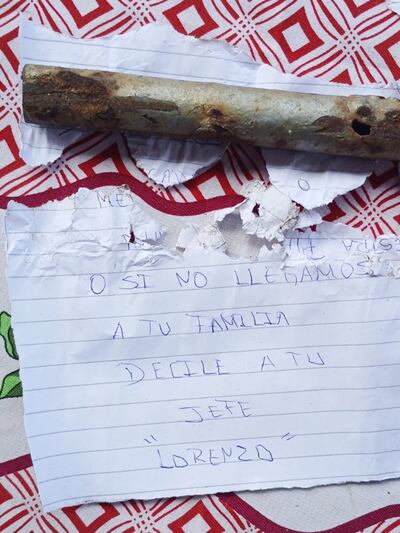 ME
O SI NO LLEGAMOS
A TU FAMILIA
DECILE A TU
JEFE
"LORENZO"